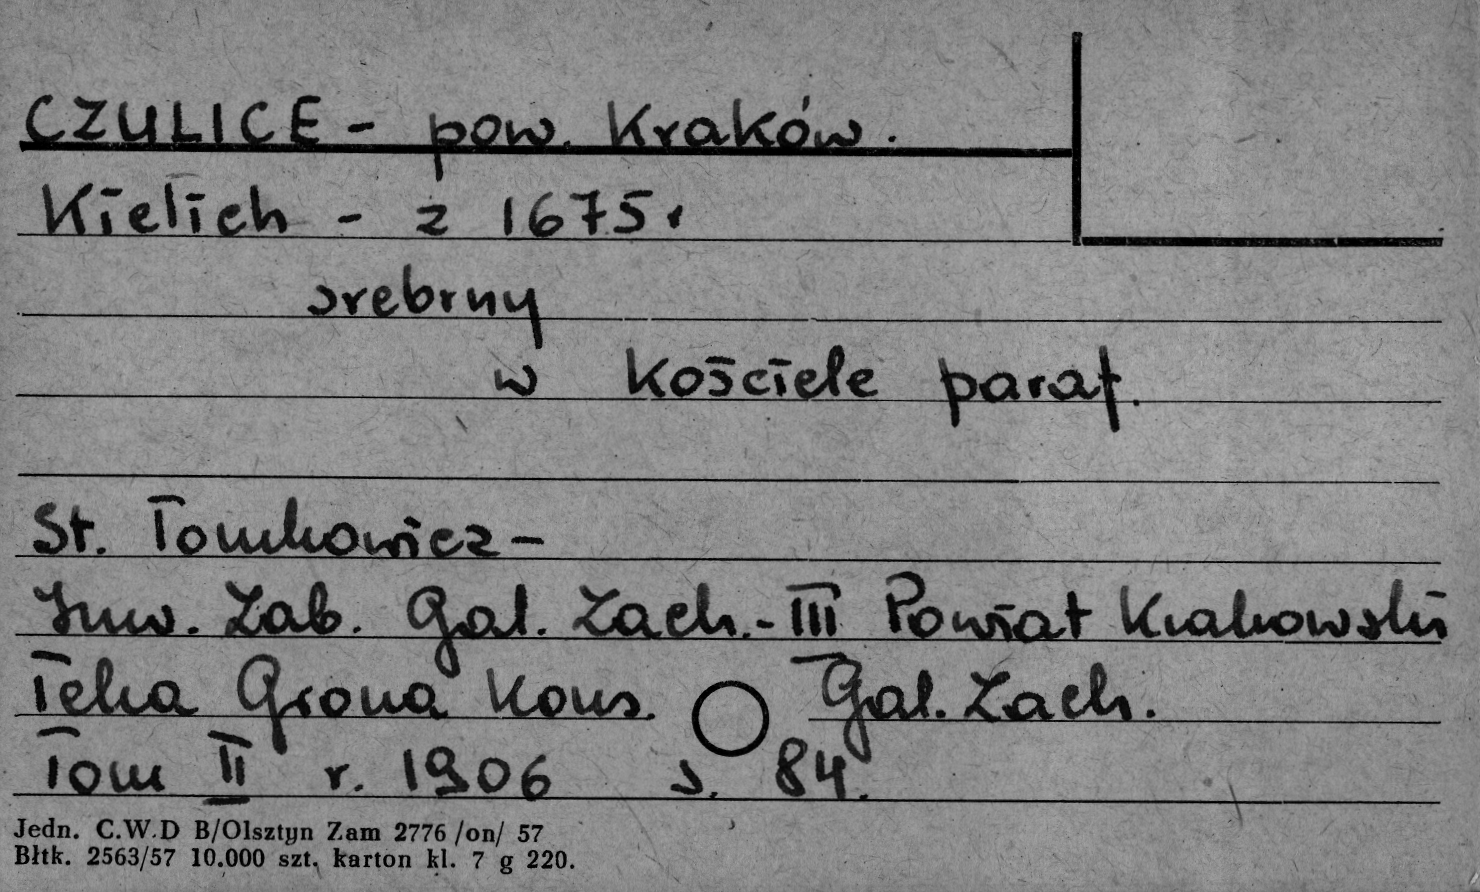 CZULICE - pow. Kraków.
Kielich - z 1675r
srebrny
w Kościele paraf.
St. Tomkowicz -
Inw. Zab. Gal. Zach. - III Powiat Krakowski
Teka Grona Kons. Gal. Zach.
Tom II r. 1906 s. 84.
Jedn. C.W.D B/Olsztyn Zam 2776 /on/ 57
Błtk. 2563/57 10.000 szt. karton kl. 7 g 220.